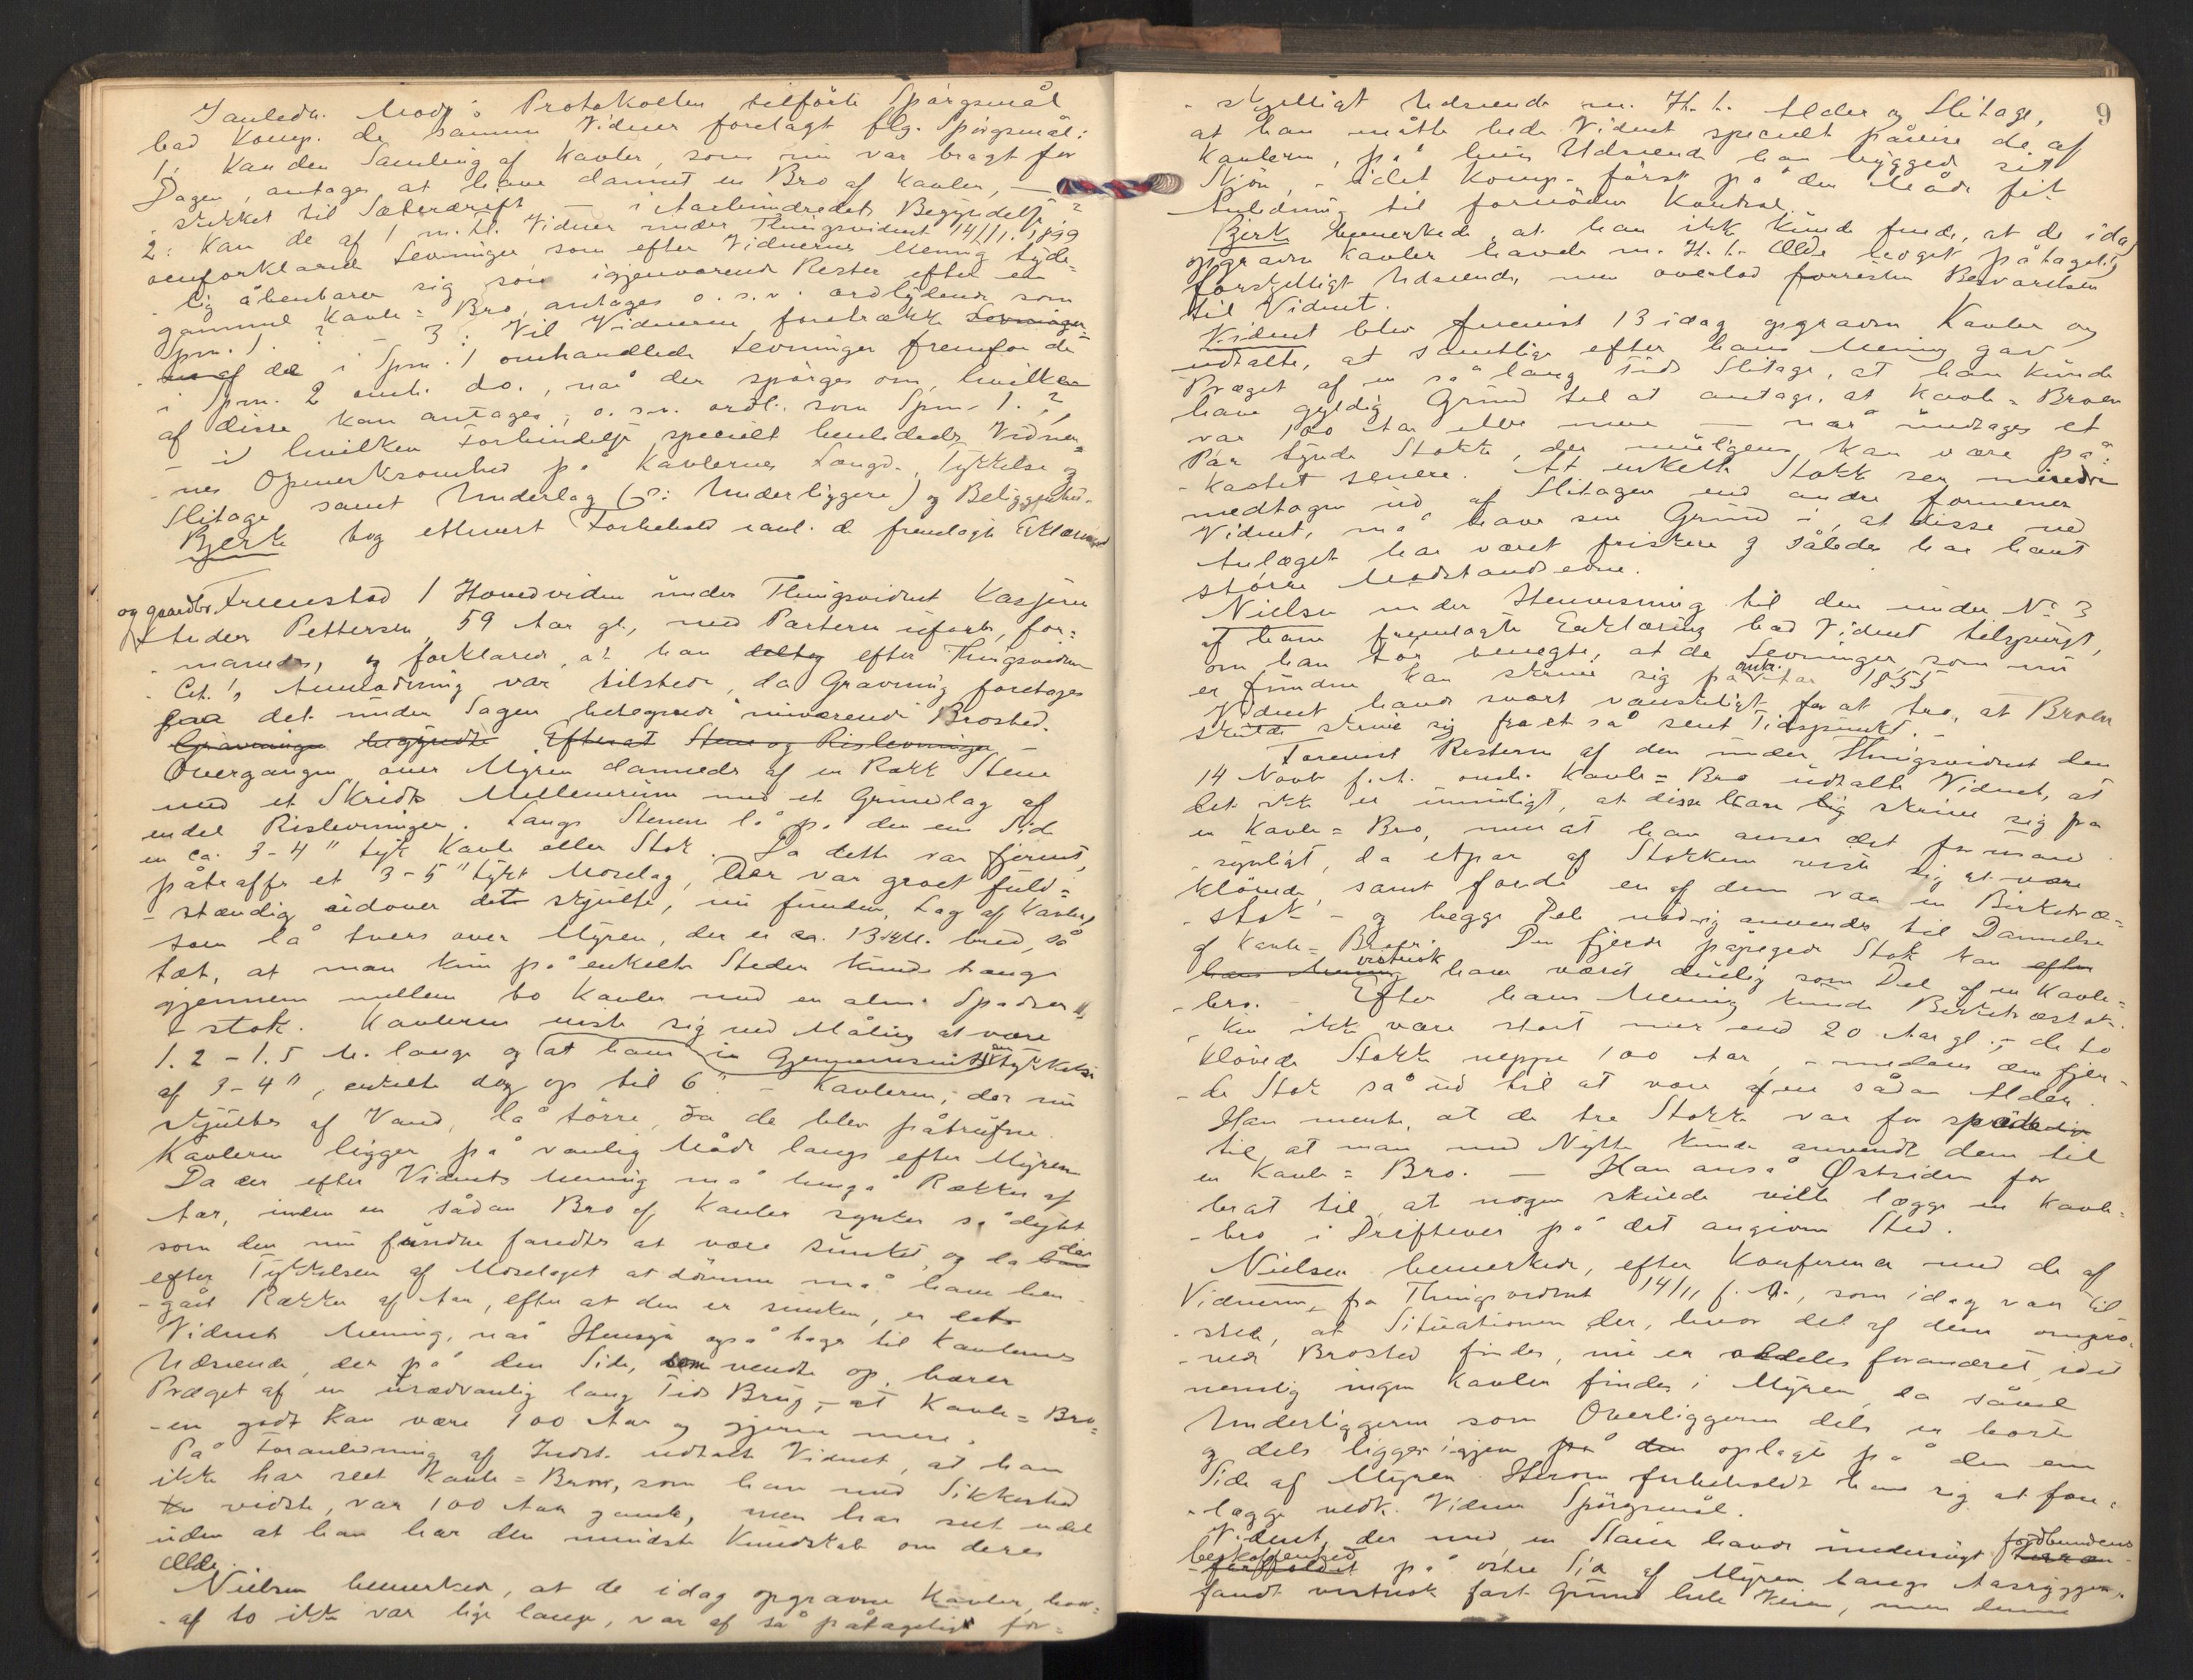 Ianledn. Mod.s Protokollen tilförte Spörgsmål
bad Komp. de samme Vidner forelagt flg. Spörgsmål:
1: Kan den Samling af Kavler, som nu var bragt for
Dagen, antages at have dannet en Bro af Kavler, –
strkket til Sæterdrift – i Aarhundredets Begyndelse?
2: Kan de af 1 m. fl. Vidner under Thingsvidnet 14/11. 1899
omforklarede Levninger, som efter Vidnernes Mening tyde-
lig åbenbarer sig som igjenværende Rester efter en
gammel Kavle=Bro, antages o.s.v. ordlydende som
Spm. 1.? – 3: Vil Vidnerne foretrække Levninger
de i Spm. 1 omhandlede Levninger fremfor de
i Spm. 2 omh. do., når der spörges om, hvilken
af disse kan antages, o.s.v. ordl. som Spm. 1.?
– i hvilken Forbindelse specielt henlededes Vidner-
nes Opmerksomhed på Kavlernes Længde, Tykkelse og
Slitage samt Underlag (ɔ: Underliggere) og Beliggenhed.
Bjerke tog ethvert Forbehold ianl. de fremlagte Erklæringer
og gaardbr. Fremstod 1 Hovedvidne under Thingsvidnet Kasserer
Peder Pettersen, 59 Aar gl., med Parterne uforb., for-
manedes, og forklarede, at han deltog efter Thingsvidne
Cit.'s Anmodning var tilstede, da Gravning foretages
paa det under Sagen betegnede nuværende Brosted.
Gravningen begyndte Efterat Stene og Rislevninger –
Overgangen over Myren dannedes af en Række Stene
med et Skridts Mellemrum med et Grundlag af
endel Rislevninger. Langs Stenene lå på den ene Side
en ca. 3-4" tyk Kavle eller Stok. Da dette var fjernet,
påtraffes et 3-5" tykt Moselag, der var groet fuld-
stændig udover det skjulte, nu fundne, Lag af Kavler,
som lå tvers over Myren, der er ca. 13 M. bred, så
tæt, at man kun på enkelte Steder kunde trænge
gjennem mellem to Kavler med en alm. Spadser-
stok. Kavlerne viste sig ved Måling at være
1.2 – 1.5 M. lange og at have en Gjennemsnitstykkelse
af 3-4", enkelte dog op til 6" – Kavlerne, der nu
skjultes af Vand, lå törre, da de blev påtrufne.
Kavlerne ligger på vanlig Måde langs efter Myren
Da der efter Vidnets Mening må hengå Rækker af
Aar, inden en sådan Bro af Kavler synker så dybt
som den nu fundne fandtes at være sunket, og da der
efter Tykkelsen af Moselaget at dömme må have hen-
gået Rækker af Aar, efter at den er sunken, er det
Vidnets Mening, når Hensyn også tages til Kavlernes
Udseende, der på den Side, som vendte op, bærer
Præget af en usædvanlig lang Tids Brug, – at Kavle=Bro-
en godt kan være 100 Aar og gjerne mere.
På Foranledning af Indst. udtalte Vidnet, at han
ikke har seet Kavle=Broer, som han med Sikkerhed
vidste, var 100 Aar gamle, men har seet endel
uden at han har den mindste Kundskab om deres
Ælde.
Nielsen bemerkede, at de idag opgravne Kavler, hvor-
af to ikke var lige lange, var af så påtageligt for-
9
skjelligt Udseende m. H. t. Alder og Slitage,
at han måtte bede Vidnet specielt påvise de af
Kavlerne, på hvis Udseende han bygged sit
Skjön, – idet Komp. först på den Måde fik
Anledning til fornöden Kontrol.
Bjerke bemerkede, at han ikke kunde finde, at de idag
opgravne Kavler havde m. H. t. Ælde noget påtageligt
forskjelligt Udseende, men overlod forresten Besvarelsen
til Vidnet.
Vidnet blev forevist 13 idag opgravne Kavler og
udtalte, at samtlige efter hans Mening gav
Præget af en så lang Tids Slitage, at han kunde
have gyldig Grund til at antage, at Kavle=Broen
var 100 Aar eller mere – når undtages et
Par tynde Stokke, der muligens kan være på-
kastet senere. At enkelte Stokke ser mindre
medtagne ud af Slitagen end andre formener
Vidnet, må have sin Grund i, at disse ved
Anlæget har været friskere og således har havt
större Modstandsevne.
Nielsen under Henvisning til den under No 3
af ham fremlagte Erklæring bad Vidnet tilspurgt,
om han tör benegte, at de Levninger som nu
er fundne kan skrive sig på omkr. Aar 1855
Vidnet havde svært vanskeligt for at tro, at Broen
skulde skrive sig fra et så sent Tidspunkt. –
Forevist Resterne af den under Thingsvidnet den
14 Novbr f. A. omh. Kavle=Bro udtalte Vidnet, at
det ikke er umuligt, at disse kan skrive sig fra
en Kavle=Bro, men at han anser det for mindre
synligt, da et par af Stokkene viste sig at være
klövede, samt fordi en af dem var en Birketræ-
stok – og begge Dele nödig anvendes til Dannelse
af Kavle=Broer. Den fjerde påpegede Stok kan efter
hans Mening vistnok have været duelig som Del af en Kavle-
bro. – Efter hans Mening kunde Birketræstok-
ken ikke være stort mer end 20 Aar gl., – de to
klövede Stokke neppe 100 Aar, – medens den fjer-
de Stok så ud til at være af en sådan Alder.
Han mente, at de tre Stokke var for
til at man med Nytte kunde anvende dem til
en Kavle=Bro. – Han anså Østsiden for
brat til, at nogen skulde ville lægge en Kavle-
bro i Driftevei på det angivne Sted.
Nielsen bemerkede, efter Konference med de af
Vidnerne fra Thingsvidnet 14/11 f. A., som idag var til-
stede, at Situationen der, hvor det af dem omprö-
vede Brosted findes, nu er aldeles forandret, idet
nemlig ingen Kavler findes i Myren, da såvel
Underliggerne som Overliggerne dels er borte
og dels ligger igjen på den oplagt på den ene
Side af Myren. Herom forbeholdt han sig at fore-
lægge vedk. Vidner Spörgsmål.
Vidnet, der med en Staur havde undersögt Jordbundens
beskaffenhed på östre Side af Myren langs Aasryggen,
fandt vistnok fast Grund hele Veien, men denne